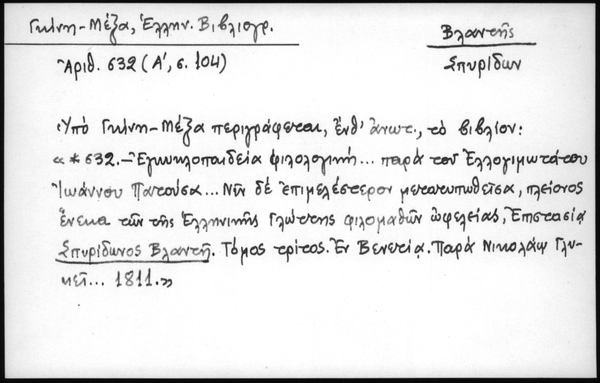 Γκίνη-Μέξα, Ἑλλην. Βιβλιογρ.
Βλαντῆς
Ἀριθ. 632 (Α', σ. 104)
Σπυρίδων
Ὑπὸ Γκίνη-Μέξα περιγράφεται, ἔνθ' ἀνωτ., τὸ βιβλίον:
«*632.-Ἐγκυκλοπαιδεία φιλολογική... παρὰ τοῦ Ἐλλογιμωτάτου
Ἰωάννου Πατούσα... Νῦν δὲ ἐπιμελέστερον μετατυπωθεῖσα, πλείονος
ἕνεκα τῶν τῆς Ἑλληνικῆς Γλώττης φιλομαθῶν ὠφελείας, Ἐπιστασίᾳ
Σπυρίδωνος Βλαντῆ. Τόμος τρίτος. Ἐν Βενετίᾳ. Παρὰ Νικολάῳ Γλυ-
κεῖ... 1811.»